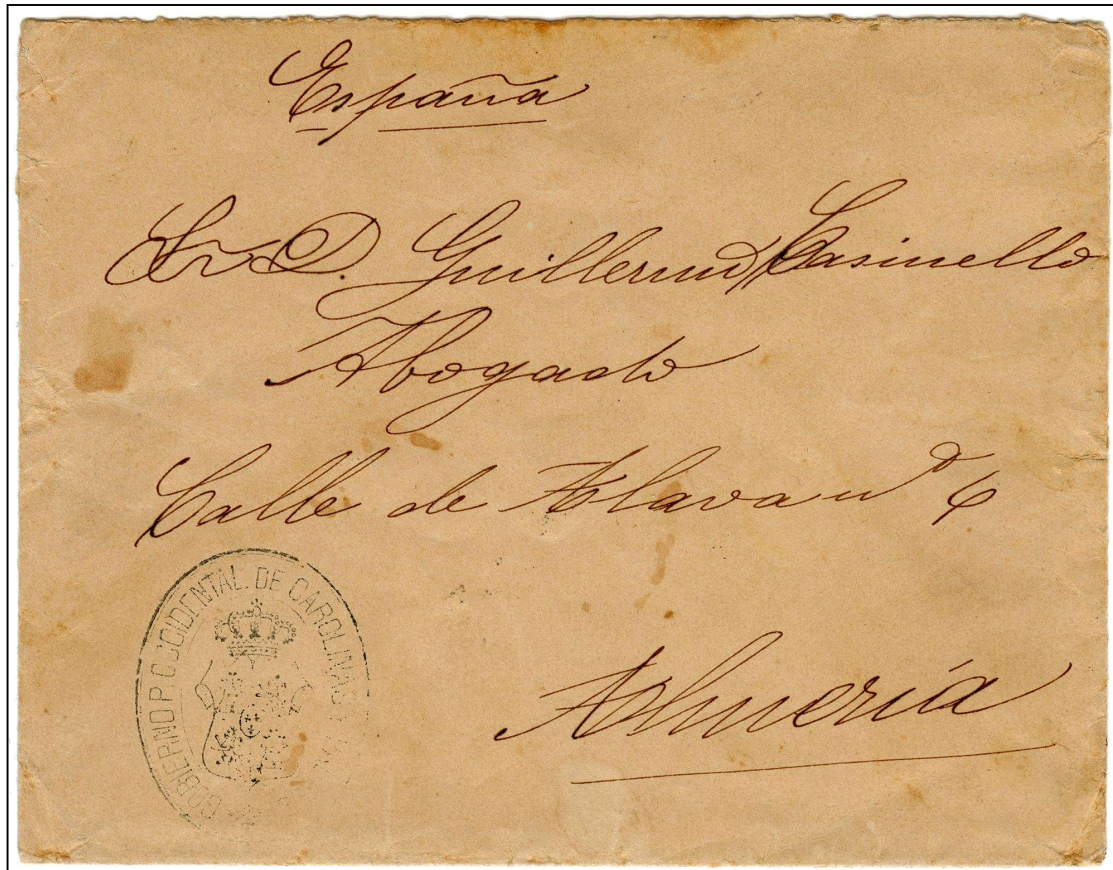 España
Sr D. Guillermo Casinello
Abogado
Calle de Alava nº 6
Almería
GOBIERNO P. OCCIDENTAL DE CAROLINAS